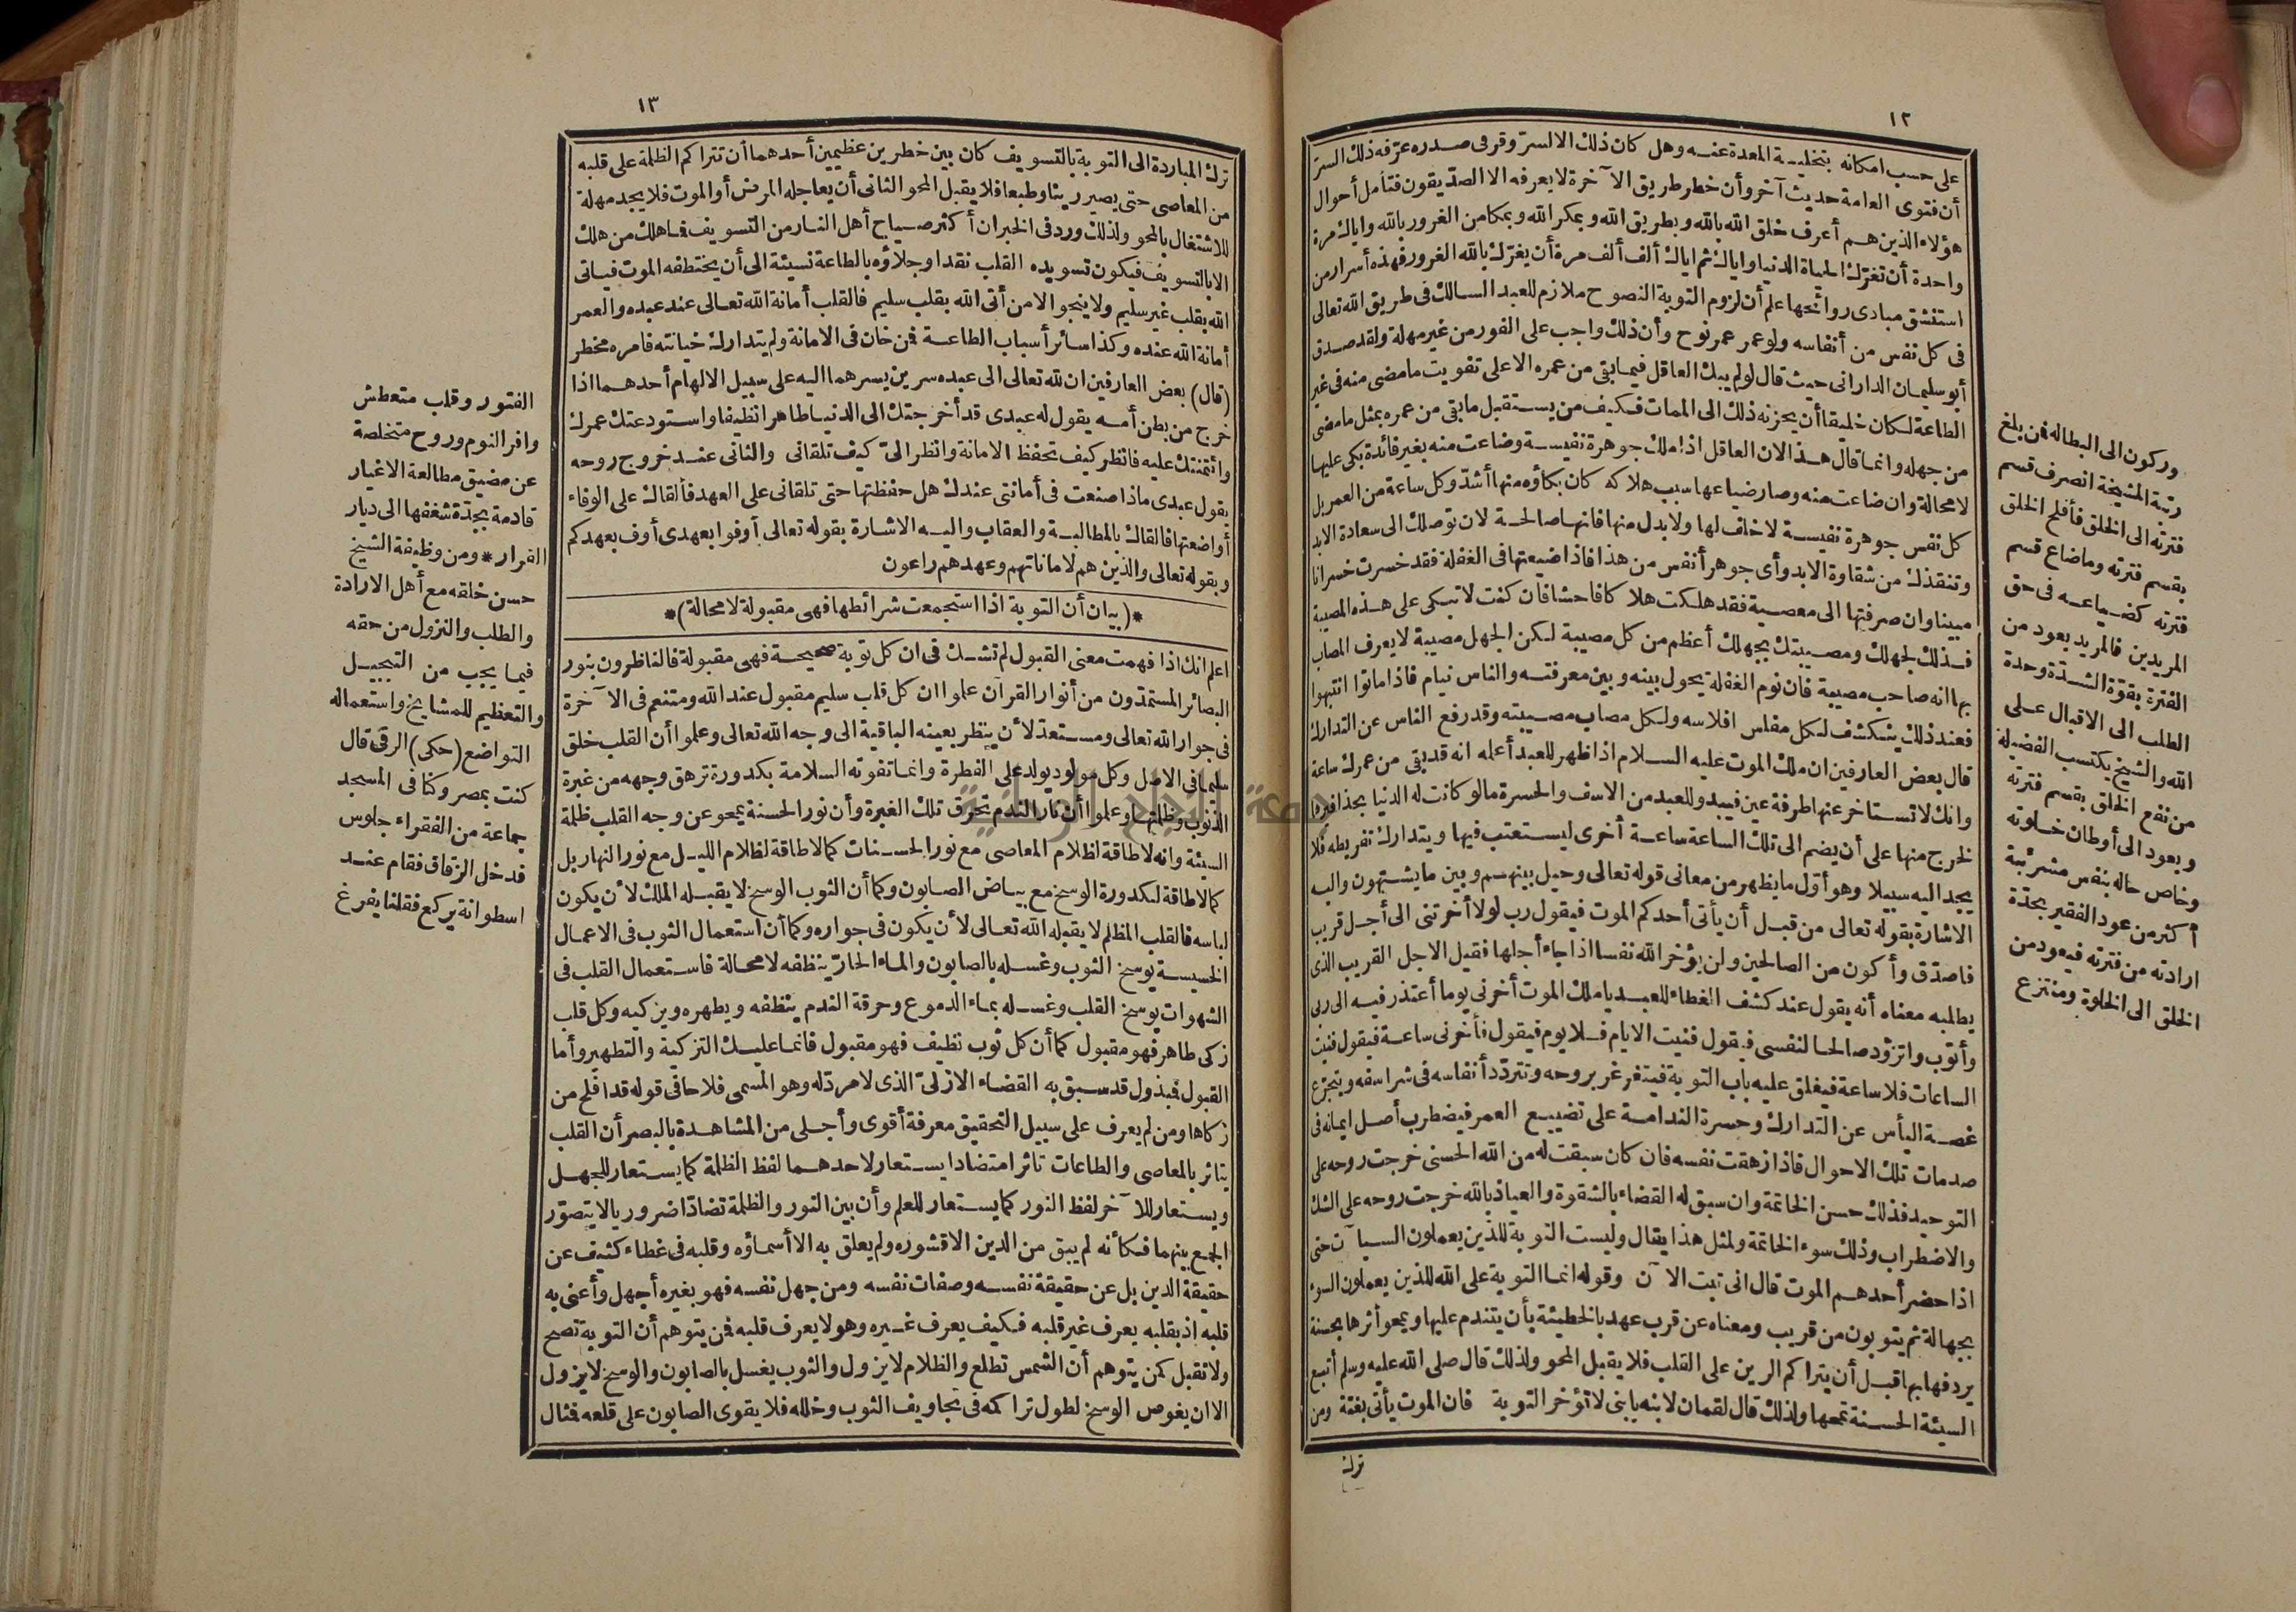 ١٢
على حسب امكانه بتخليـة المعدة عنـه وهل كان ذلك الا لسر وقر فى صـدره عرّفه ذلك السرّ
أن فتوى العامة حديث آخر وأن خطر طريق الآخرة لا يعرفه الا الصدّيقون فتأمل أحوال
هؤلاء الذين هـم أعرف خلق الله بالله وبطريق الله وبمكر الله وبمكامن الغرور بالله واياك مرة
واحدة أن تغرّك الحياة الدنيا واياك ثم اياك ألف ألف مرة أن يغرّك بالله الغرور فهذه أسرار من
استنشق مبادى روائحها علم أن لزوم التوبة النصوح ملازم للعبد السالك فى طريق الله تعالى
فى كل نفس من أنفاسه ولو عمر عمر نوح وأن ذلك واجب على الفور من غير مهلة ولقد صدق
أبو سليمان الدارانى حيث قال لو لم يبك العاقل فيما بقى من عمره الا على تفويت ما مضى منه فى غير
الطاعة لكان خليقا أن يحزنه ذلك الى الممات فكيف من يستقبل ما بقى من عمره بمثل ما مضى
من جهله وانما قال هـذا لان العاقل اذا ملك جوهرة نفيسـة وضاعت منه بغير فائدة بكى عليها
لا محالة وان ضاعت منه وصار ضياعها سبب هلاكه كان بكاؤه منها أشدّ وكل ساعة من العمر بل
كل نفس جوهرة نفيسـة لا خلف لها ولا بدل منها فانها صالحـة لان توصلك الى سعادة الابد
وتنقذك من شقاوة الابد وأى جوهر أنفس من هذا فاذا ضيعتها فى الغفلة فقد خسرت خسرانا
مبينا وان صرفتها الى معصـية فقد هلكت هلاكا فاحشا فان كنت لا تبكى على هـذه المصيبة
فـذلك لجهلك ومصـيبتك بجهلك أعظم من كل مصيبة لكن الجهل مصيبة لا يعرف المصاب
بها انه صاحب مصيبة فان نوم الغفلة يحول بينه وبين معرفتـه والناس نيام فاذا ماتوا انتبهوا
فعند ذلك ينكشف لكل مفلس افلاسه ولكل مصاب مصـيبته وقد رفع الناس عن التدارك
قال بعض العارفين ان ملك الموت عليه السـلام اذا ظهر للعبد أعلمه انه قد بقى من عمرك ساعة
وانك لا تسـتأخر عنها طرفة عين فيبدو للعبد من الاسف والحسرة ما لو كانت له الدنيا بحذافيرها
لخرج منها على أن يضم الى تلك الساعة ساعـة أخرى ليسـتعتب فيها ويتدارك تفريطه فلا
يجد اليه سبيلا وهو أوّل ما يظهر من معانى قوله تعالى وحيل بينهـم وبين ما يشتهون واليـه
الاشارة بقوله تعالى من قبـل أن يأتى أحدكم الموت فيقول رب لولا أخرتنى الى أجـل قريب
فاصدّق وأكون من الصالحين ولن يؤخر الله نفسا اذا جاء أجلها فقيل الاجل القريب الذى
يطلبه معناه أنه يقول عند كشف الغطاء للعبـد يا ملك الموت أخرنى يوما أعتذر فيـه الى ربى
وأتوب واتزوّد صالحـا لنفسى فيقول فنيت الايام فـلا يوم فيقول فأخرنى ساعـة فيقول فنيت
الساعات فلا ساعة فيغلق عليه باب التوبة فيتغرغر بروحه وتتردّد أنفاسه فى شراسفه ويتجرّع
غصـة اليأس عن التدارك وحسرة الندامـة على تضييـع العمر فيضطرب أصـل ايمانه فى
صدمات تلك الاحوال فاذا زهقت نفسه فان كان سبقت له من الله الحسنى خرجت روحه على
التوحيد فذلك حسن الخاتمة وان سبق له القضاء بالشقوة والعياذ بالله خرجت روحه على الشك
والاضطراب وذلك سوء الخاتمة ولمثل هذا يقال وليست التوبة للذين يعملون السيآت حتى
اذا حضر أحدهـم الموت قال انى تبت الآن وقوله انما التوبة على الله للذين يعملون السوء
بجهالة ثم يتوبون من قريب ومعناه عن قرب عهد بالخطيئة بأن يتندم عليها ويمحو أثرها بحسنة
يردفها بها قبـل أن يتراكم الرين على القلب فلا يقبل المحو ولذلك قال صلى الله عليه وسلم أتبع
السيئة الحسـنة تمحها ولذلك قال لقمان لابنه يا بنى لا تؤخر التوبة فان الموت يأتى بغتة ومن
ترك
وركون الى البطالة فمن بلغ
رتبة المشيخة انصرف قسم
فترته الى الخلق فأفلح الخلق
بقسم فترته وما ضاع قسم
فترته كضـياعـه فى حق
المريدين فالمريد يعود من
الفترة بقوّة الشـدّة وحدة
الطلب الى الاقبال عـلى
الله والشيخ يكتسب الفضيلة
من نفع الخلق بقسم فترته
ويعود الى أوطان خـلوته
وخاص حاله بنفس مشرئبة
أكثر من عود الفقير بحدّة
ارادته من فترته فيعود من
الخلق الى الخلوة ومنتزع
١٣
ترك المبادرة الى التوبة بالتسويف كان بين خطرين عظيمين أحدهما أن تتراكم الظلمة على قلبه
من المعاصى حتى يصير رينا وطبعا فلا يقبل المحو الثانى أن يعاجله المرض أو الموت فلا يجد مهلة
للاشتغال بالمحو ولذلك ورد فى الخبر ان أكثر صـياح أهل النـار من التسويف فما هلك من هلك
الا بالتسويف فيكون تسويده القلب نقدا وجلاؤه بالطاعة نسيئة الى أن يختطفه الموت فيأتى
الله بقلب غير سليم ولا ينجو الا من أتى الله بقلب سليم فالقلب أمانة الله تعالى عند عبده والعمر
أمانة الله عنده وكذا سائر أسباب الطاعـة فمن خان فى الامانة ولم يتدارك خيانته فامره مخطر
(قال) بعض العارفين ان لله تعالى الى عبده سرين يسرهما اليه على سبيل الالهام أحدهـما اذا
خرج من بطن أمـه يقول له عبدى قد أخرجتك الى الدنيـا طاهرا نظيفا واسـتودعتك عمرك
وائتمنتك عليه فانظر كيف تحفظ الامانة وانظر الىّ كيف تلقانى والثانى عنـد خروج روحه
يقول عبدى ماذا صنعت فى أمانتى عندك هل حفظتها حتى تلقانى على العهد فألقاك على الوفاء
أو اضعتها فالقاك بالمطالبـة والعقاب واليـه الاشارة بقوله تعالى أوفوا بعهدى أوف بعهدكم
وبقوله تعالى والذين هم لاماناتهم وعهدهم راعون
*(بيان أن التوبة اذا استجمعت شرائطها فهى مقبولة لا محالة)*
اعلم انك اذا فهمت معنى القبول لم تشـك فى ان كل توبة صحيحـة فهى مقبولة فالناظرون بنور
البصائر المستمدّون من أنوار القرآن علموا ان كل قلب سليم مقبول عند الله ومتنعم فى الآخرة
فى جوار الله تعالى ومسـتعدّ لأن ينظر بعينه الباقية الى وجه الله تعالى وعلموا أن القلب خلق
سليما فى الاصل وكل مولود يولد على الفطرة وانما تفوته السلامة بكدورة ترهق وجهه من غبرة
الذنوب وظلمتها وعلموا أن نار الندم تحرق تلك الغبرة وأن نور الحسنة يمحو عن وجه القلب ظلمة
السيئة وانه لا طاقة لظلام المعاصى مع نور الحسـنات كما لا طاقة لظلام الليـل مع نور النهار بل
كما لا طاقة لكدورة الوسخ مع بيـاض الصابون وكما أن الثوب الوسخ لا يقبـله الملك لأن يكون
لباسه فالقلب المظلم لا يقبله الله تعـالى لأن يكون فى جواره وكما أن استعمال الثوب فى الاعمال
الخسيسـة يوسخ الثوب وغسـله بالصابون والمـاء الحـارّ ينظفه لا محـالة فاسـتعمال القلب فى
الشهوات يوسخ القلب وغسـله بمـاء الدموع وحرقة الندم ينظفه ويطهره ويزكيه وكل قلب
زكى طاهر فهو مقبول كما أن كل ثوب نظيف فهو مقبول فانما عليـك التزكية والتطهير وأما
القبول فمبذول قد سـبق به القضـاء الازلىّ الذى لا مردّ له وهو المسمى فلاحا فى قوله قد أفلح من
زكاها ومن لم يعرف على سبيل التحقيق معرفة أقوى وأجـلى من المشاهـدة بالبصر أن القلب
يتأثر بالمعاصى والطاعات تأثرا متضادا يسـتعار لاحدهـما لفظ الظلمة كما يسـتعار للجهـل
ويسـتعار للآخر لفظ النور كما يسـتعار للعلم وأن بين النور والظلمة تضادّا ضروريا لا يتصوّر
الجمـع بينهما فـكأنه لم يبق من الدين الا قشوره ولم يعلق به الا أسمـاؤه وقلبه فى غطاء كثيف عن
حقيقة الدين بل عن حقيقة نفسـه وصفات نفسه ومن جهل نفسه فهو بغيره أجهل وأعنى به
قلبه اذ بقلبه يعرف غير قلبه فـكيف يعرف غـيره وهو لا يعرف قلبه فمن يتوهم أن التوبة تصح
ولا تقبل كمن يتوهم أن الشمس تطلع والظلام لا يزول والثوب يغسل بالصابون والوسخ لا يزول
الا ان يغوص الوسخ لطول تراكمه فى تجاويف الثوب وخلله فلا يقوى الصابون على قلعه فمثال
الفتور وقلب متعطش
وافر النوم وروح متخلصة
عن مضيق مطالعة الاغيار
قادمة بحدّة شغفها الى ديار
القرار * ومن وظيفة الشيخ
حسن خلقه مع أهل الارادة
والطلب والنزول من حقه
فيما يجب من التبجيـل
والتعظيم للمشايخ واستعماله
التواضع (حكى) الرقى قال
كنت بمصر وكنا فى المسجد
جماعة من الفقراء جلوس
فدخل الزقاق فقام عنـد
اسطوانة يركع فقلنا يفرغ